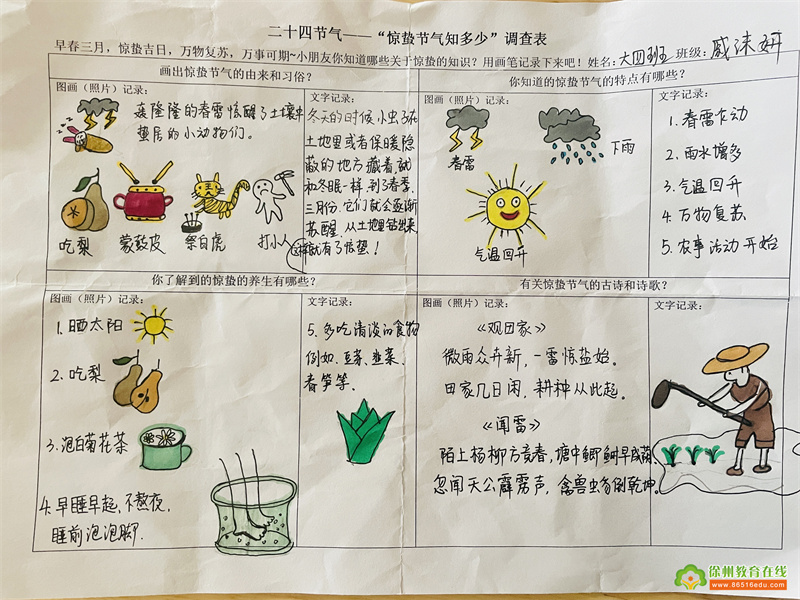 二十四节气——“惊蛰节气知多少”调查表
早春三月，惊蛰吉日，万物复苏，万事可期~小朋友你知道哪些关于惊蛰的知识？用画笔记录下来吧！姓名：大四班 班级：戚沫妍
画出惊蛰节气的由来和习俗？
图画（照片）记录：
轰隆隆的春雷惊醒了土壤中
蛰居的小动物们。
吃梨
蒙鼓皮
祭白虎
打小人
文字记录：
冬天的时候小虫子在
土地里或者保暖隐
蔽的地方藏着，就
和冬眠一样，到了春季，
三月份，它们就会逐渐
苏醒，从土地里钻出来，
这样就有了惊蛰！
你知道的惊蛰节气的特点有哪些？
图画（照片）记录：
春雷
下雨
气温回升
文字记录：
1.春雷乍动
2.雨水增多
3.气温回升
4.万物复苏
5.农事活动开始
你了解到的惊蛰的养生有哪些？
图画（照片）记录：
1.晒太阳
2.吃梨
3.泡白菊花茶
4.早睡早起，不熬夜，
睡前泡泡脚.
文字记录：
5.多吃清淡的食物
例如.豆芽、韭菜、
春笋等.
有关惊蛰节气的古诗和诗歌？
图画（照片）记录：
《观田家》
微雨众卉新，一雷惊蛰始。
田家几日闲，耕种从此起。
《闻雷》
陌上杨柳方竞春，塘中鲫鲥早成荫。
忽闻天公霹雳声，禽兽虫豸倒乾坤。
文字记录：
徐州教育在线
www.86516edu.com